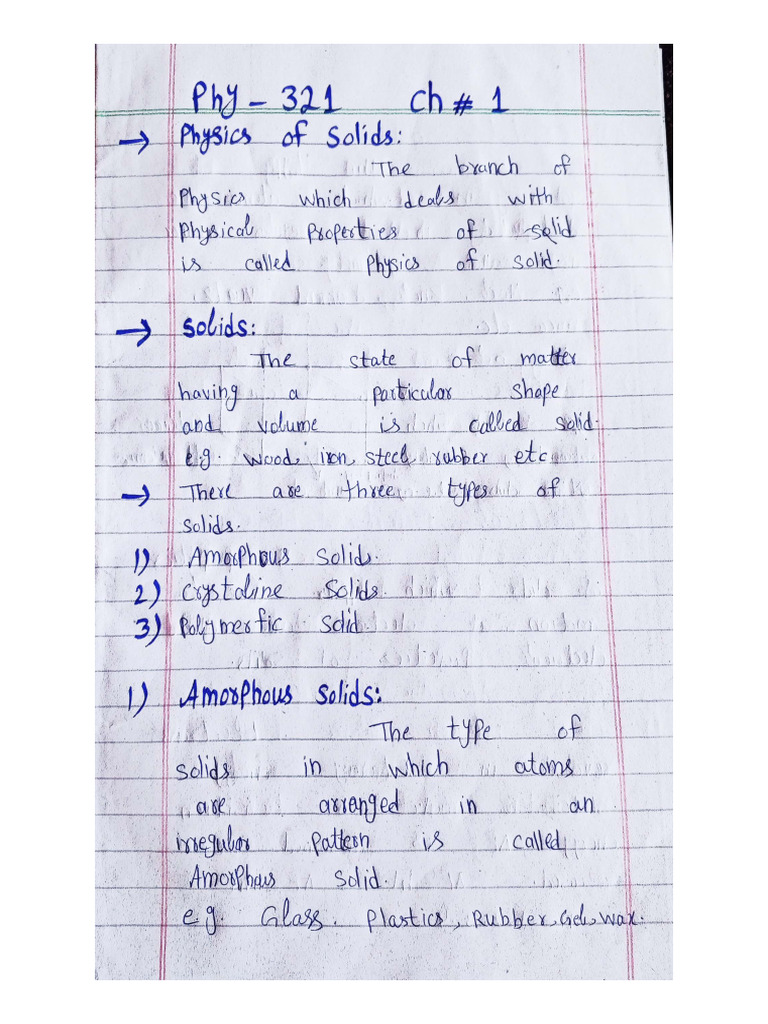 Phy - 321 Ch # 1
→ Physics of Solids:
The branch of
Physics which deals with
Physical Properties of solid
is called Physics of Solid.
→ Solids:
The state of matter
having a particular shape
and volume is called solid.
e.g. wood, iron, steel, rubber etc.
→ There are three types of
solids.
1) Amorphous Solid.
2) Crystaline Solids.
3) Polymerfic Solid.
1) Amorphous Solids:
The type of
solids in which atoms
are arranged in an
irregular pattern is called
Amorphous Solid.
e.g. Glass. Plastics, Rubber, Gel, wax.